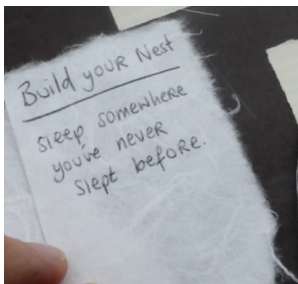 Build your Nest
sleep somewhere
you've never
slept before.